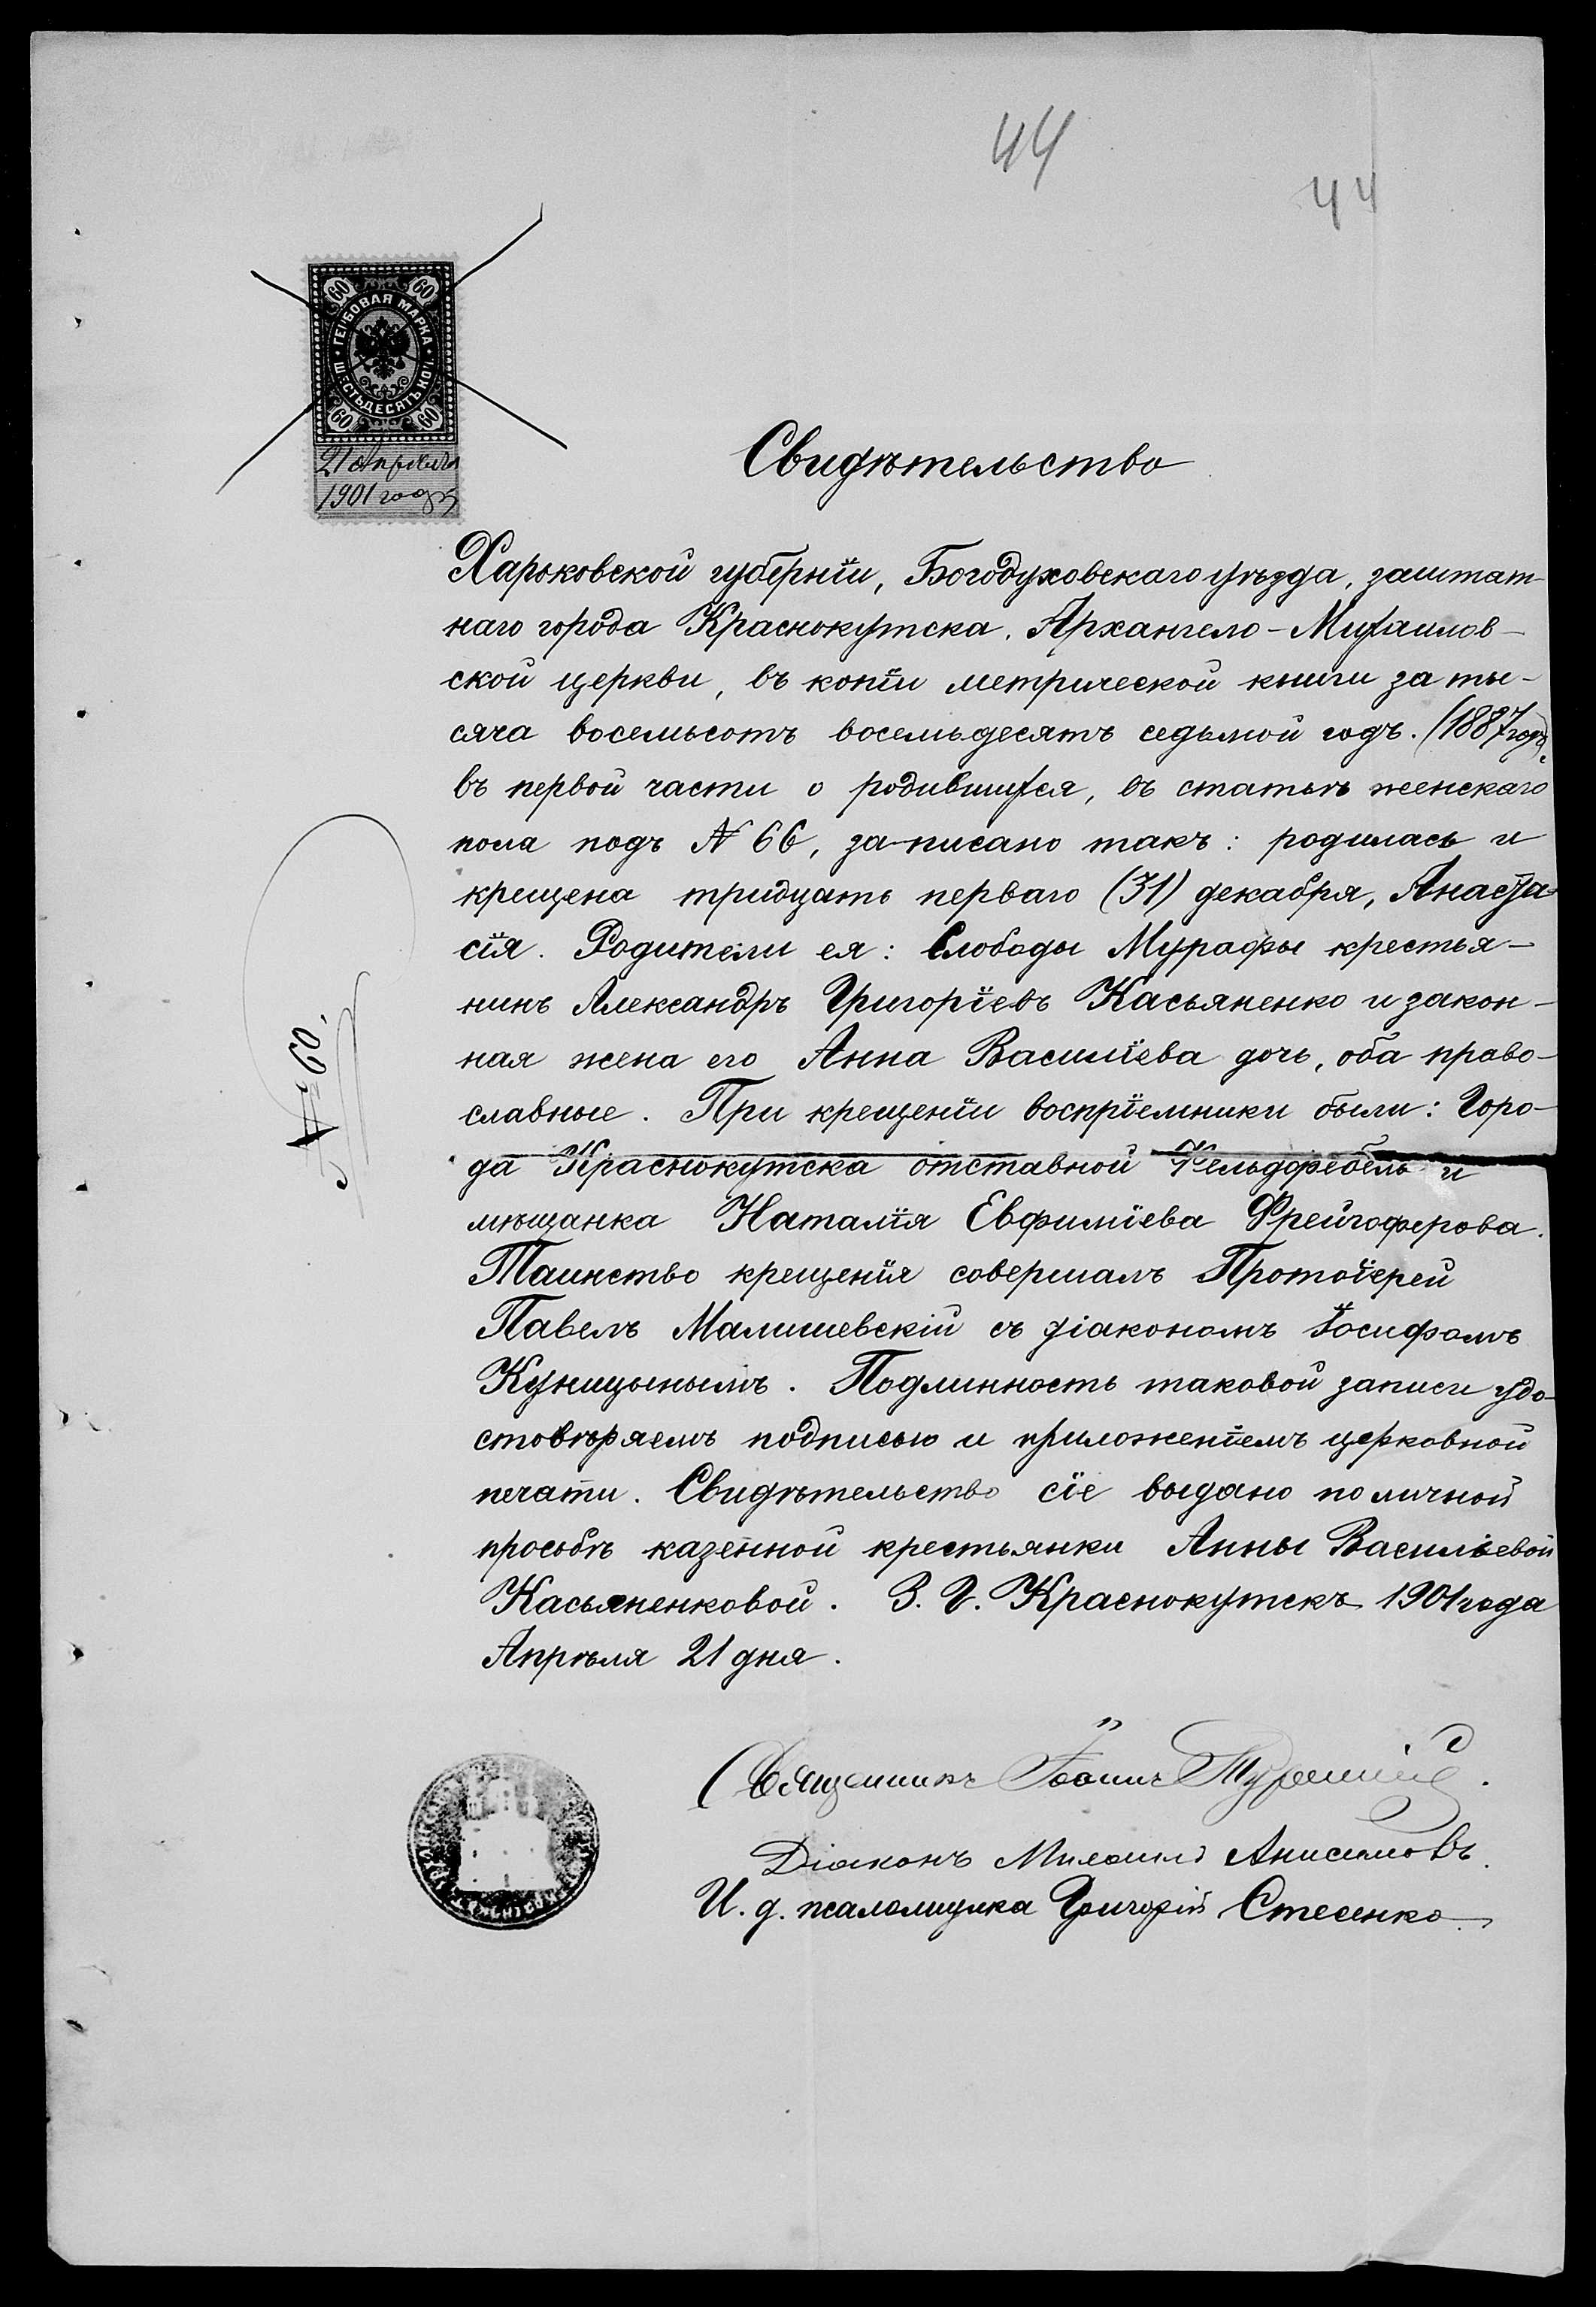 44
44
60 60
ГЕРБОВАЯ МАРКА
ШЕСТЬДЕСЯТЪ КОП.
60 60
21 апрѣля
1901 года
Свидѣтельство
Харьковской губерніи, Богодуховскаго уѣзда, заштат-
наго города Краснокутска, Архангело-Михаилов-
ской церкви, въ копіи метрической книги за ты-
сяча восемьсотъ восемьдесятъ седьмой годъ. (1887 годъ,
въ первой части о родившихся, въ статьѣ женскаго
пола подъ № 66, записано такъ: родилась и
крещена тридцать перваго (31) декабря, Анаста-
сія. Родители ея: Слободы Мурафы крестья-
нинъ Александръ Григоріевъ Касьяненко и закон-
ная жена его Анна Василіева дочь, оба право-
славные. При крещеніи воспріемники были: Горо-
да Краснокутска отставной Фельдфебель и
мѣщанка Наталія Евфиміева Фрейгоферова.
Таинство крещенія совершалъ Протоіерей
Павелъ Малишевскій съ діакономъ Іосифомъ
Куницынымъ. Подлинность таковой записи удо-
стовѣряемъ подписью и приложеніемъ церковной
печати. Свидѣтельство сіе выдано по личной
просьбѣ казенной крестьянки Анны Васильевой
Касьяненковой. З. Г. Краснокутскъ 1901 года
Апрѣля 21 дня.
№ 60.
Священникъ Іоаннъ
Діаконъ Михаилъ Анисимовъ.
И. д. псаломщика Григорій Стесенко